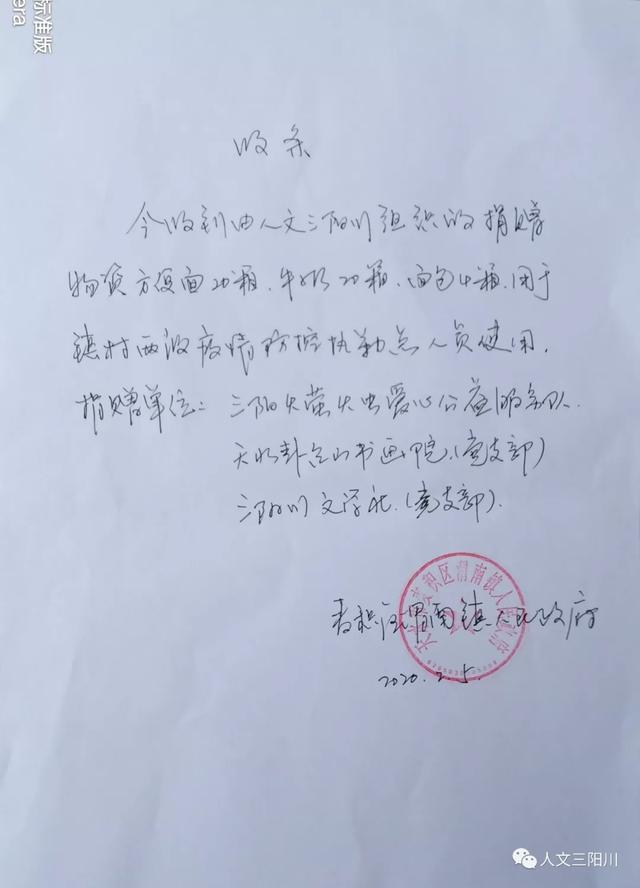 标准版
era
收条
今收到由人文三阳川组织的捐赠
物资方便面20箱、牛奶20箱、面包4箱,用于
镇村两级疫情防控执勤点人员使用,
捐赠单位: 三阳火萤火虫爱心公益服务队
天水卦台山书画院(党支部)
三阳川文学社(党支部).
麦积区渭南镇人民政府
2020.2.5.
麦积区渭南镇人民政府
人文三阳川